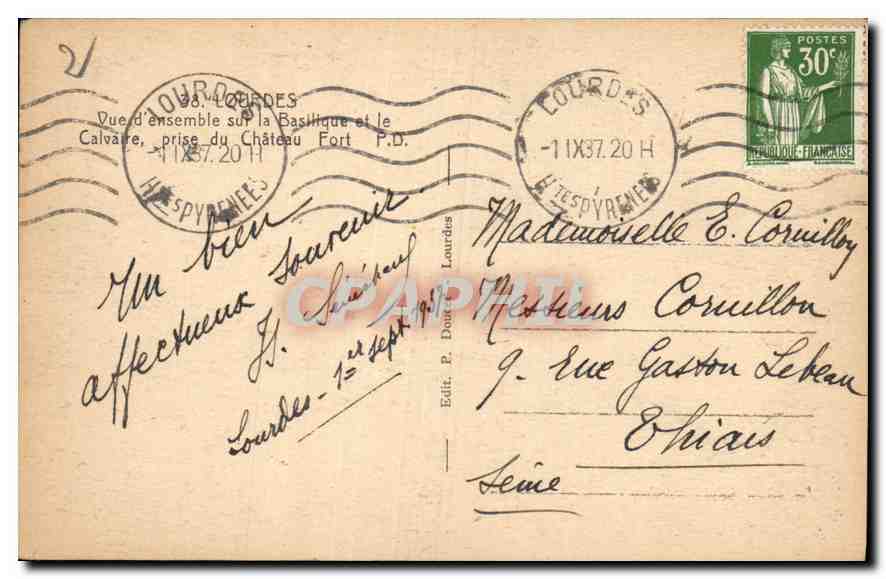 2/
38. LOURDES
Vue d'ensemble sur la Basilique et le
Calvaire, prise du Château Fort P.D.
LOURDES
-1 IX37.20H
HTES PYRENEES
LOURDES
-1 IX37.20H
HTES PYRENEES
POSTES
30c
REPUBLIQUE-FRANÇAISE
Un bien
affectueux souvenir.
Lourdes - 1er sept 1937
CPAPHIL
Edit. P. Doucet, Lourdes
Mademoiselle E. Cornillon
Messieurs Cornillon
9. Rue Gaston Lebeau
Thiais
Seine